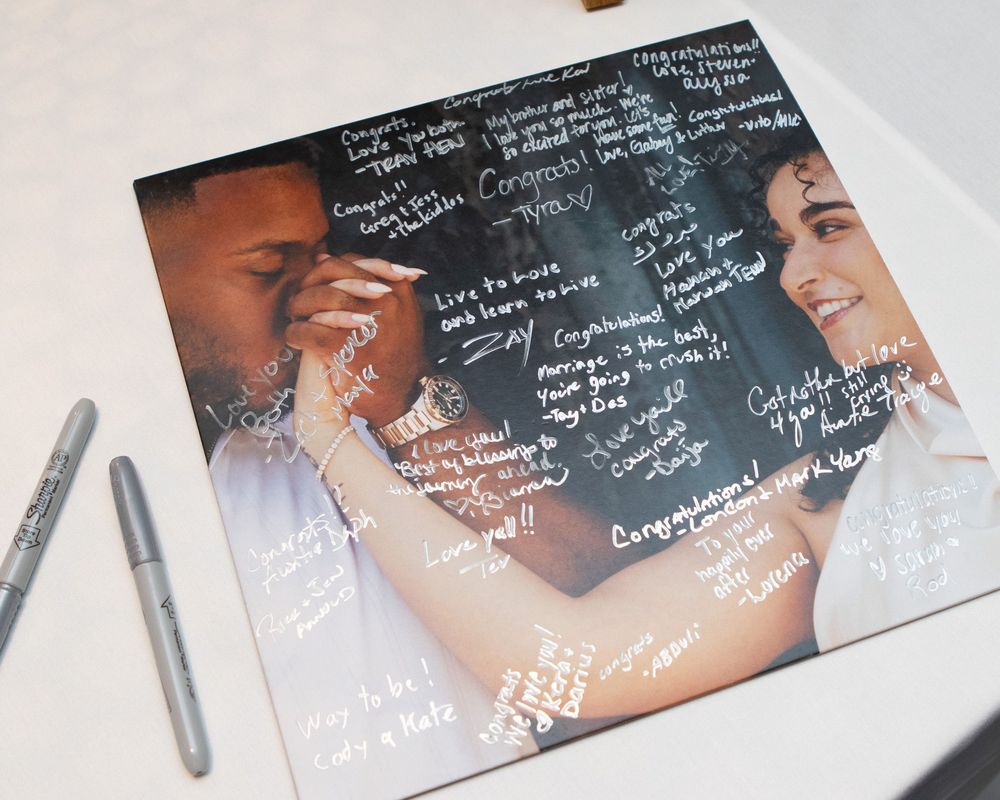 Congratulations!!
Love, Steven +
Alyssa
Congrats
Congrats.
Love you both
-TRAV HEN
My brother and sister!
I love you so much. We're
so excited for you. Let's
have some fun!
Love, Gabby & Luther
Congratulations!
Congrats!!
Greg + Jess
+ the kiddos
Congrats!
-Tyra ♡
All
Love!
congrats
مبروك
Love you
Hanan +
Marwan
Live to Love
and learn to Live
- ZAY
Congratulations!
Marriage is the best,
you're going to crush it!
-Tay + Das
Love you
Both
Zach + Spencer
Nayla
Got mother but love
4 you!! still
crying
Auntie Tracye
I love you!
Best of blessings to
the journey ahead.
♡, Bianca
Love ya'll
congrats
-Daija
Congratulations!
-London & Mark Yang
Congratulations!!
we love you
♡ Sarah
Rod
Love yall!!
Tev
To your
happily ever
after
-Lorenas
Congrats!!
Auntie Daph
Rice + Jen
Arnold
congrats
-ABDUli
Congrats
We love you!
Kera +
Darius
Way to be!
Cody & Kate
Sharpie